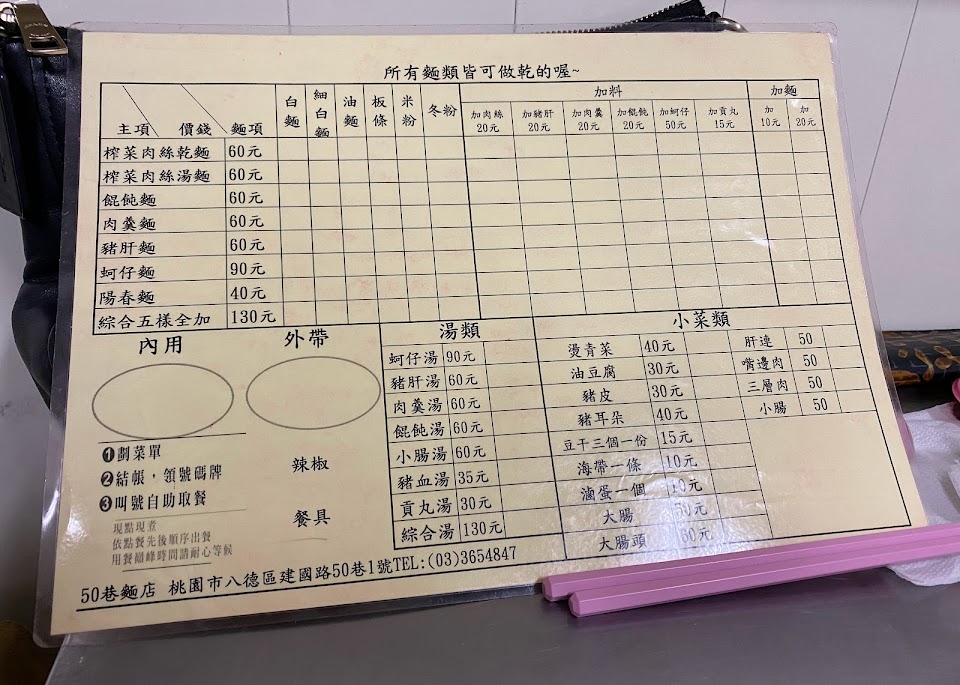 所有麵類皆可做乾的喔~
主項 價錢 麵項 白麵 細白麵 油麵 板條 米粉 冬粉 加料 加麵
加肉絲20元 加豬肝20元 加肉羹20元 加餛飩20元 加蚵仔50元 加貢丸15元 加10元 加20元
榨菜肉絲乾麵 60元
榨菜肉絲湯麵 60元
餛飩麵 60元
肉羹麵 60元
豬肝麵 60元
蚵仔麵 90元
陽春麵 40元
綜合五樣全加 130元
內用 外帶
❶劃菜單
❷結帳，領號碼牌
❸叫號自助取餐
現點現煮
依點餐先後順序出餐
用餐巔峰時間請耐心等候
辣椒
餐具
湯類
蚵仔湯 90元
豬肝湯 60元
肉羹湯 60元
餛飩湯 60元
小腸湯 60元
豬血湯 35元
貢丸湯 30元
綜合湯 130元
小菜類
燙青菜 40元 肝連 50
油豆腐 30元 嘴邊肉 50
豬皮 30元 三層肉 50
豬耳朵 40元 小腸 50
豆干三個一份 15元
海帶一條 10元
滷蛋一個 10元
大腸 50元
大腸頭 60元
50巷麵店 桃園市八德區建國路50巷1號TEL:(03)3654847